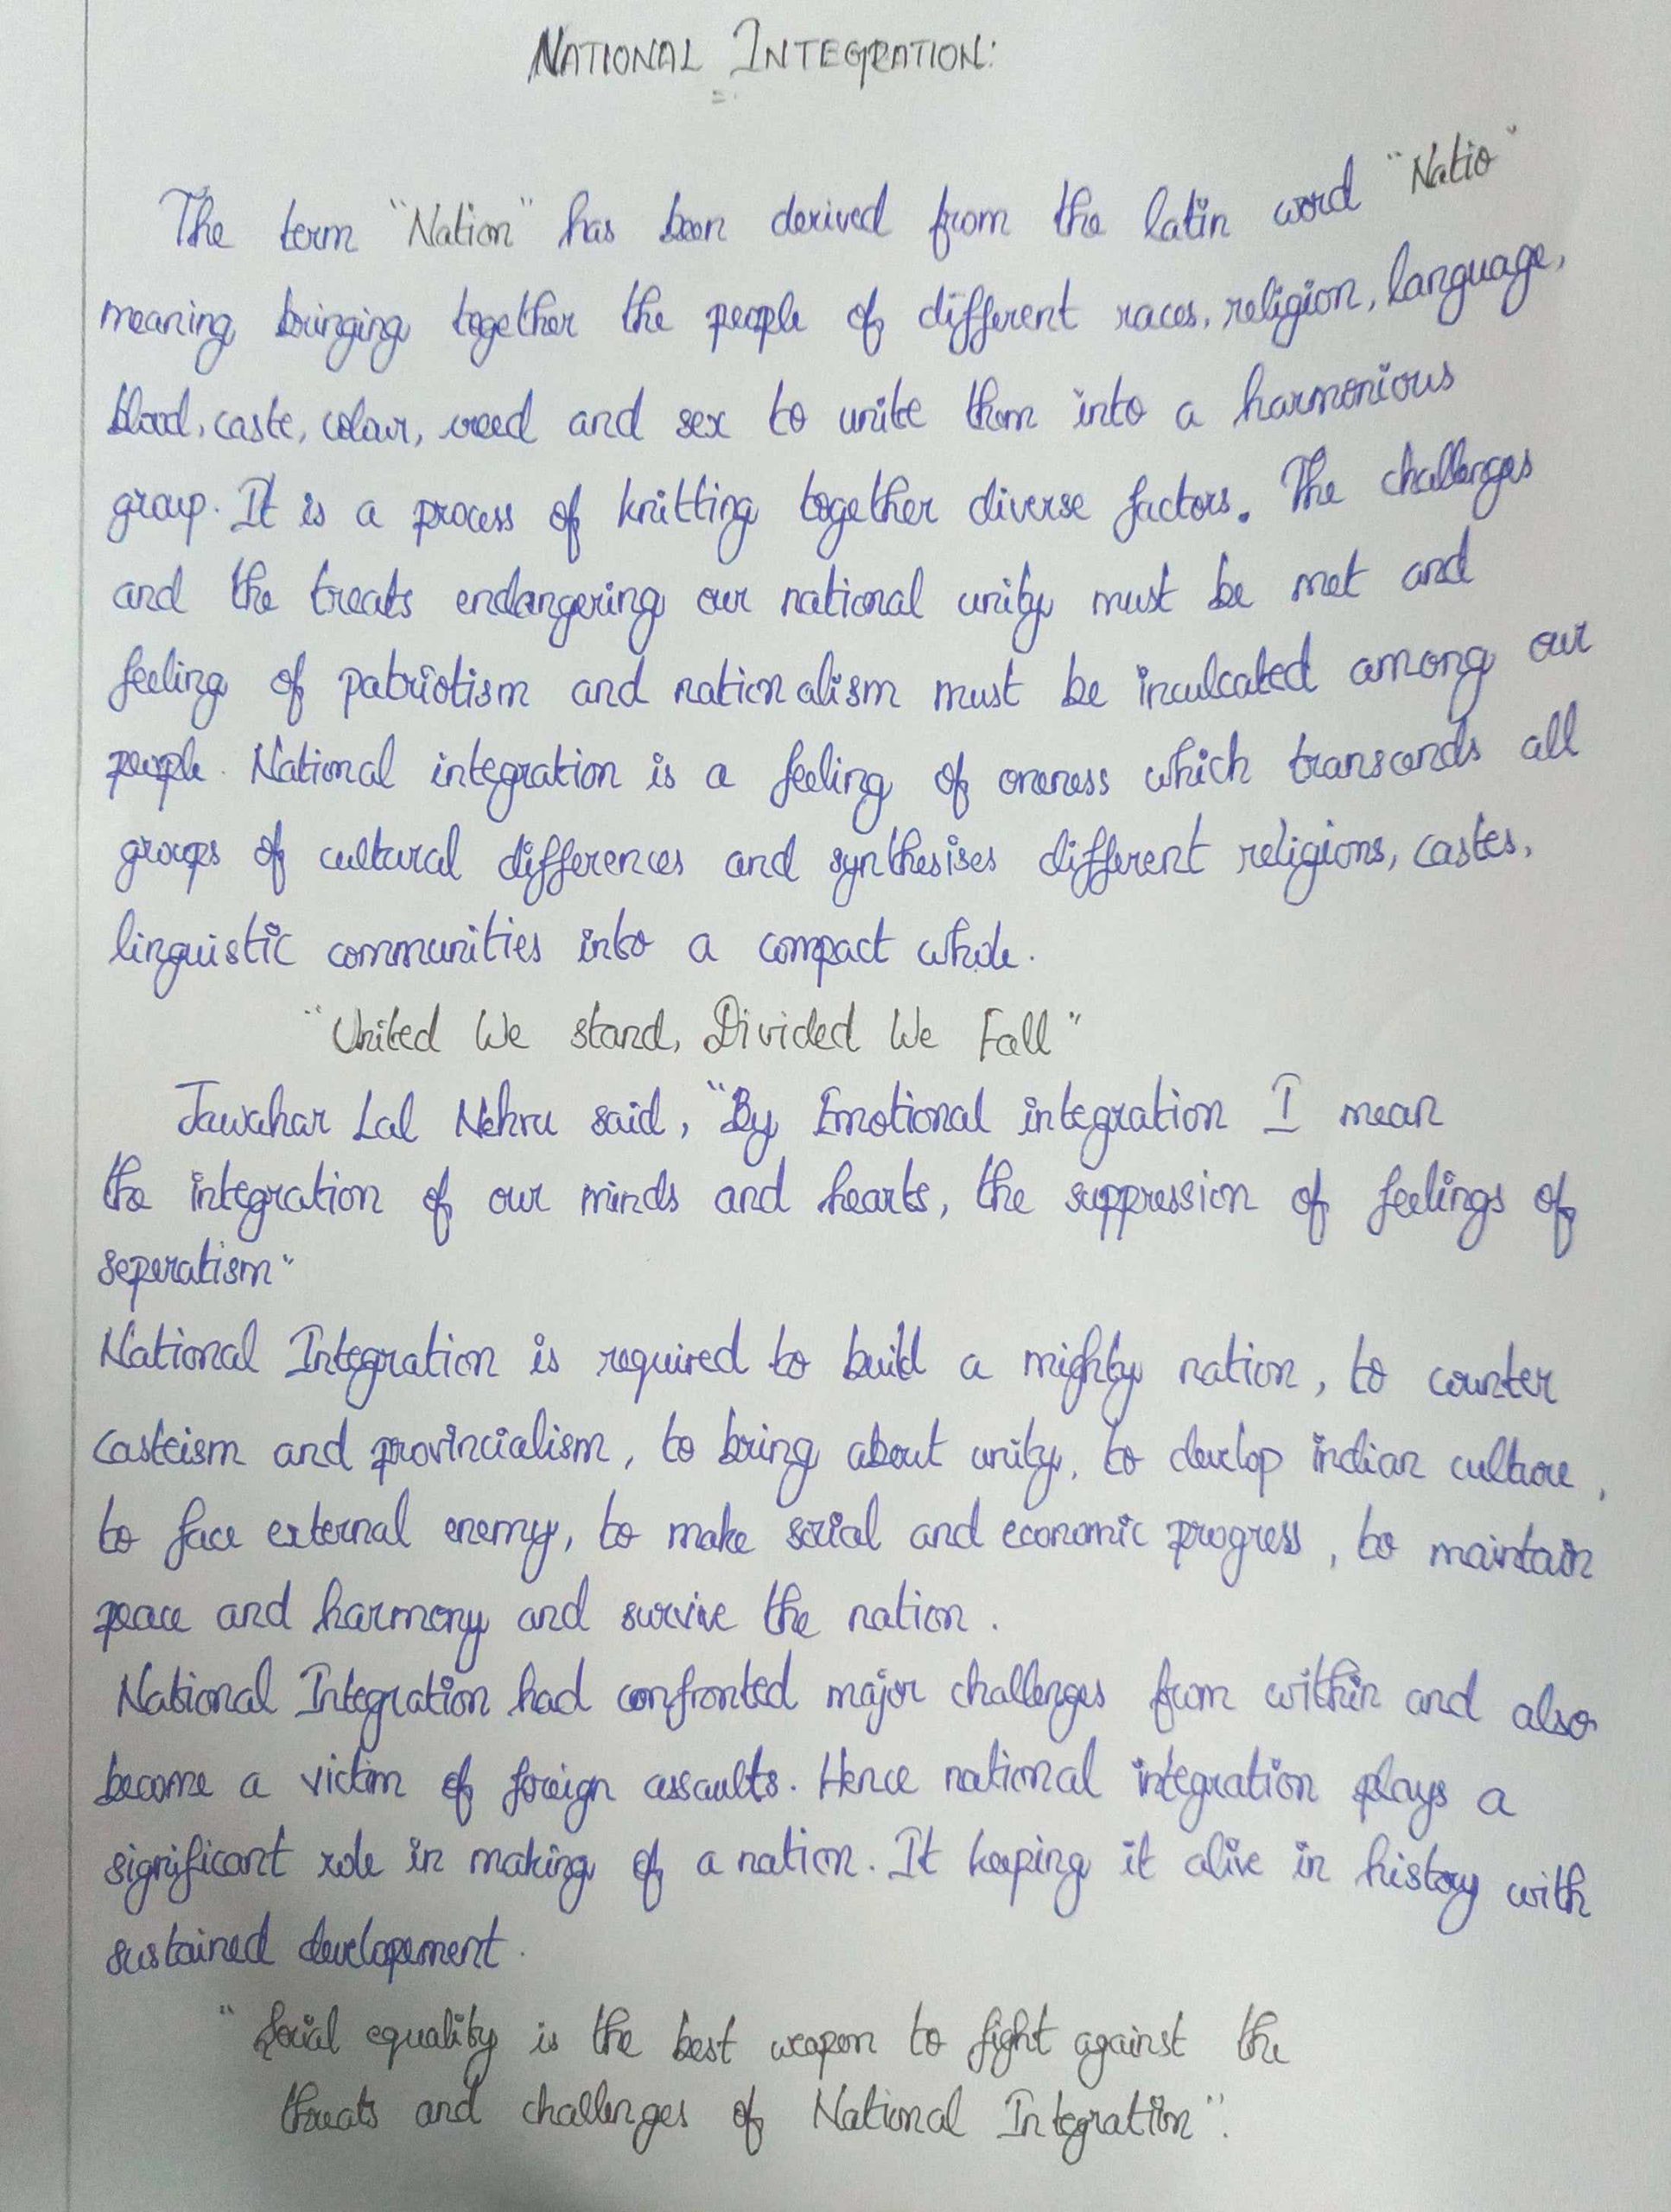 NATIONAL INTEGRATION:
The term "Nation" has been derived from the latin word "Natio"
meaning bringing together the people of different races, religion, language,
blood, caste, colour, creed and sex to unite them into a harmonious
group. It is a process of knitting together diverse factors. The challenges
and the treats endangering our national unity must be met and
feeling of patriotism and nationalism must be inculcated among our
people. National integration is a feeling of oneness which transcends all
groups of cultural differences and synthesises different religions, castes,
linguistic communities into a compact whole.
"United We stand, Divided We Fall"
Jawahar Lal Nehru said, "By Emotional integration I mean
the integration of our minds and hearts, the suppression of feelings of
seperatism"
National Integration is required to build a mighty nation, to counter
casteism and provincialism, to bring about unity, to develop indian culture,
to face external enemy, to make social and economic progress, to maintain
peace and harmony and survive the nation.
National Integration had confronted major challenges from within and also
become a victim of foreign assaults. Hence national integration plays a
significant role in making of a nation. It keeping it alive in history with
sustained developement.
"Social equality is the best weapon to fight against the
threats and challenges of National Integration".